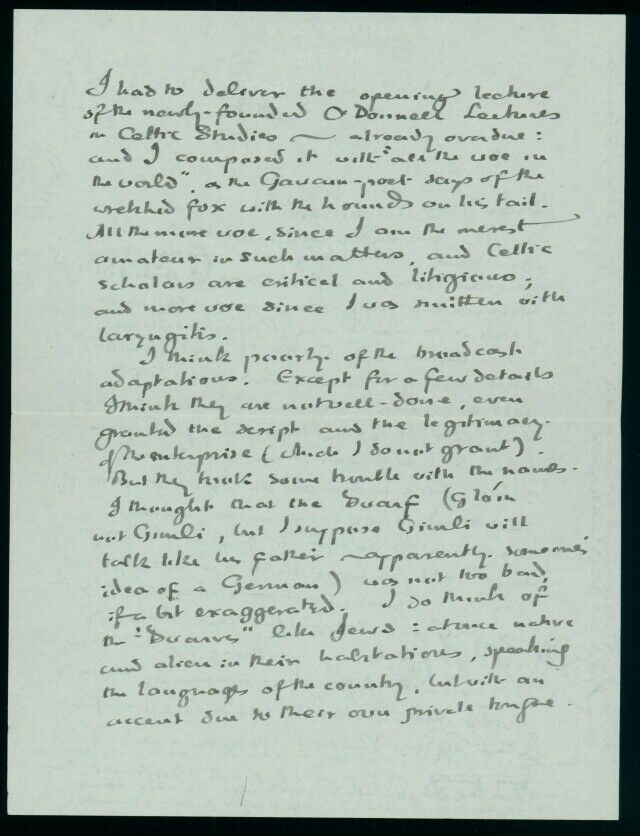 I had to deliver the opening lecture
of the newly-founded O'Donnell Lectures
in Celtic Studies – already overdue :
and I composed it with "all the woe in
the world", as the Gawain-poet says of the
wretched fox with the hounds on his tail.
All the more woe, since I am the merest
amateur in such matters, and Celtic
scholars are critical and litigious ;
and more woe since I was smitten with
laryngitis.
I think poorly of the broadcast
adaptations. Except for a few details
I think they are not well-done, even
granted the script and the legitimacy
of the enterprise (which I do not grant).
But they took some trouble with the names.
I thought that the Dwarf (Glóin
not Gimli, but I suppose Gimli will
talk like his father – apparently someone's
idea of a German) was not too bad,
if a bit exaggerated. I do think of
the "Dwarves" like Jews : at once native
and alien in their habitations, speaking
the languages of the country, but with an
accent due to their own private tongue.